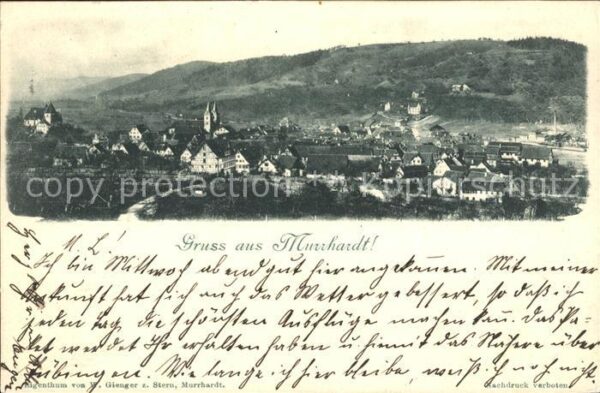 copyright copyright copyright kopierschutz
Gruss aus Murrhardt!
M. L.!
Ich bin Mittwoch abend gut hier angekommen. Mit meiner
Ankunft hat sich auch das Wetter gebessert, so daß ich
jeden Tag die schönsten Ausflüge machen kann. Das Pa-
ket werdet Ihr erhalten haben u. hiemit das Nähere über
Tübingen. Wie lange ich hier bleibe, weiß ich noch nicht.
Eigenthum von W. Gienger z. Stern, Murrhardt.
Nachdruck verboten.